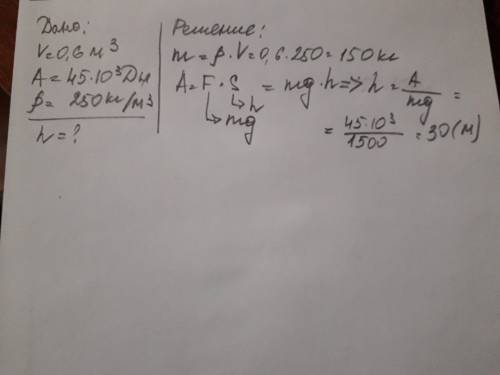 Дано:
V=0,6 м³
A=45·10³Дж
ρ= 250кг/м³
h=?
Решение:
m=ρ·V=0,6·250=150кг
A=F·S = mg·h=>h=A/mg=
↳h
↳mg
=45·10³/1500=30(м)